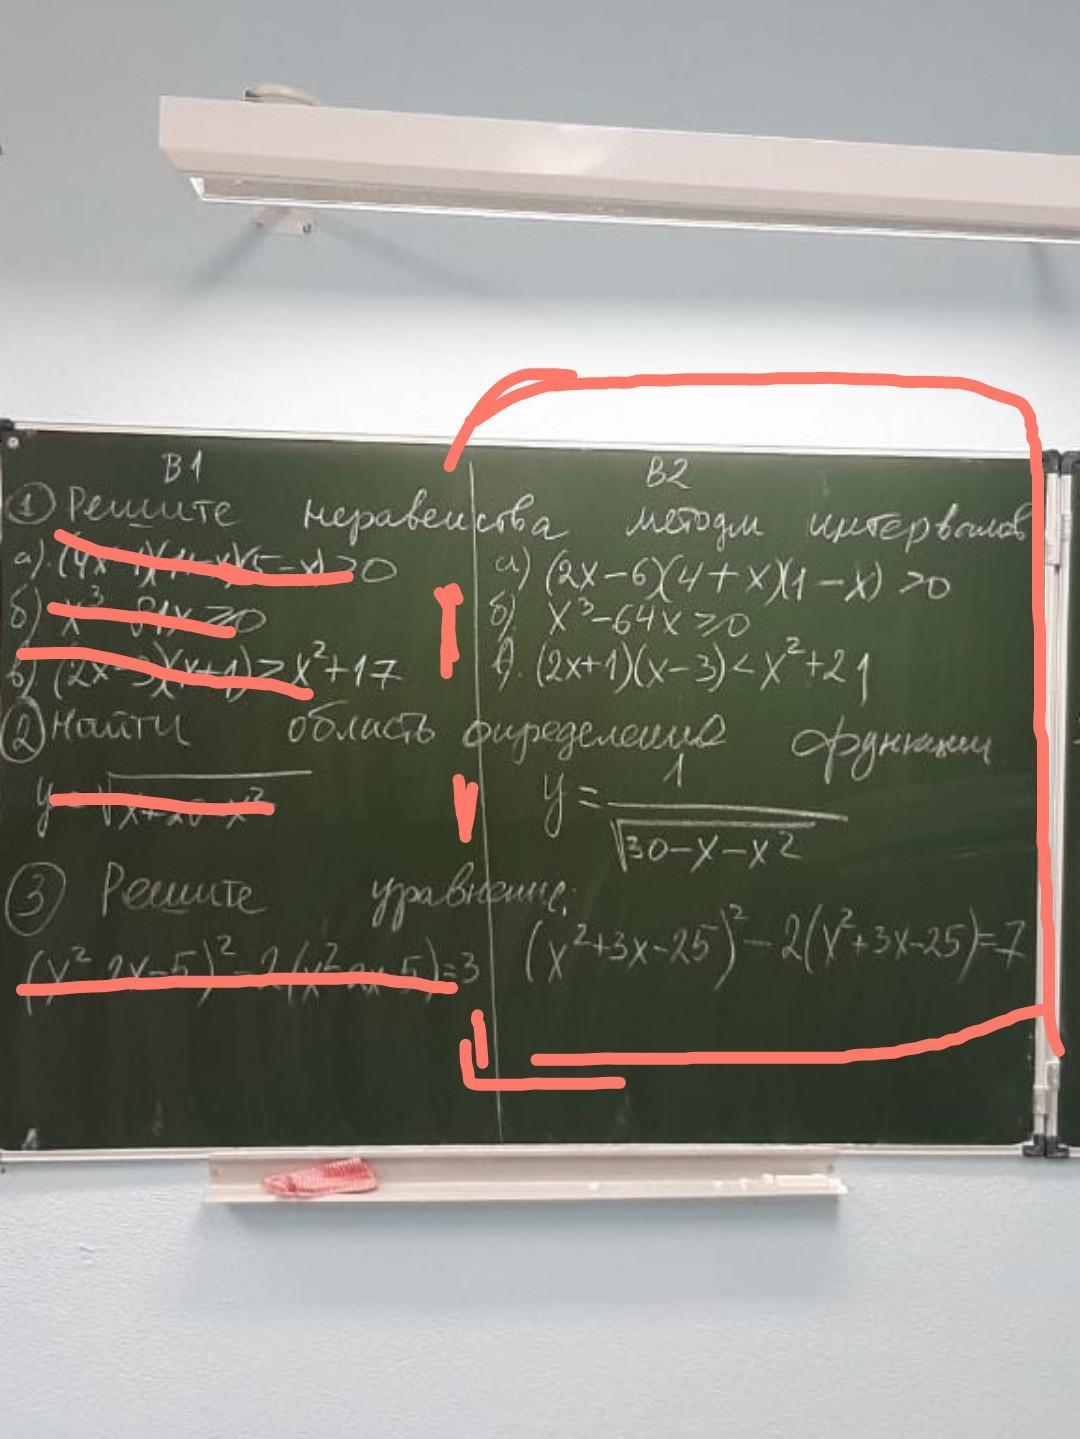 В1
В2
① Решите неравенства методм интервалов
а) (2x-6)(4+x)(1-x)>0
б) x³-64x≥0
в) (2x-3)(x+1)>x²+17
в). (2x+1)(x-3)<x²+21
② Найти область определения функции
y=1/√(30-x-x²)
③ Решите уравнение:
(x²-2x-5)²-2(x²-2x-5)=3
(x²+3x-25)²-2(x²+3x-25)=7